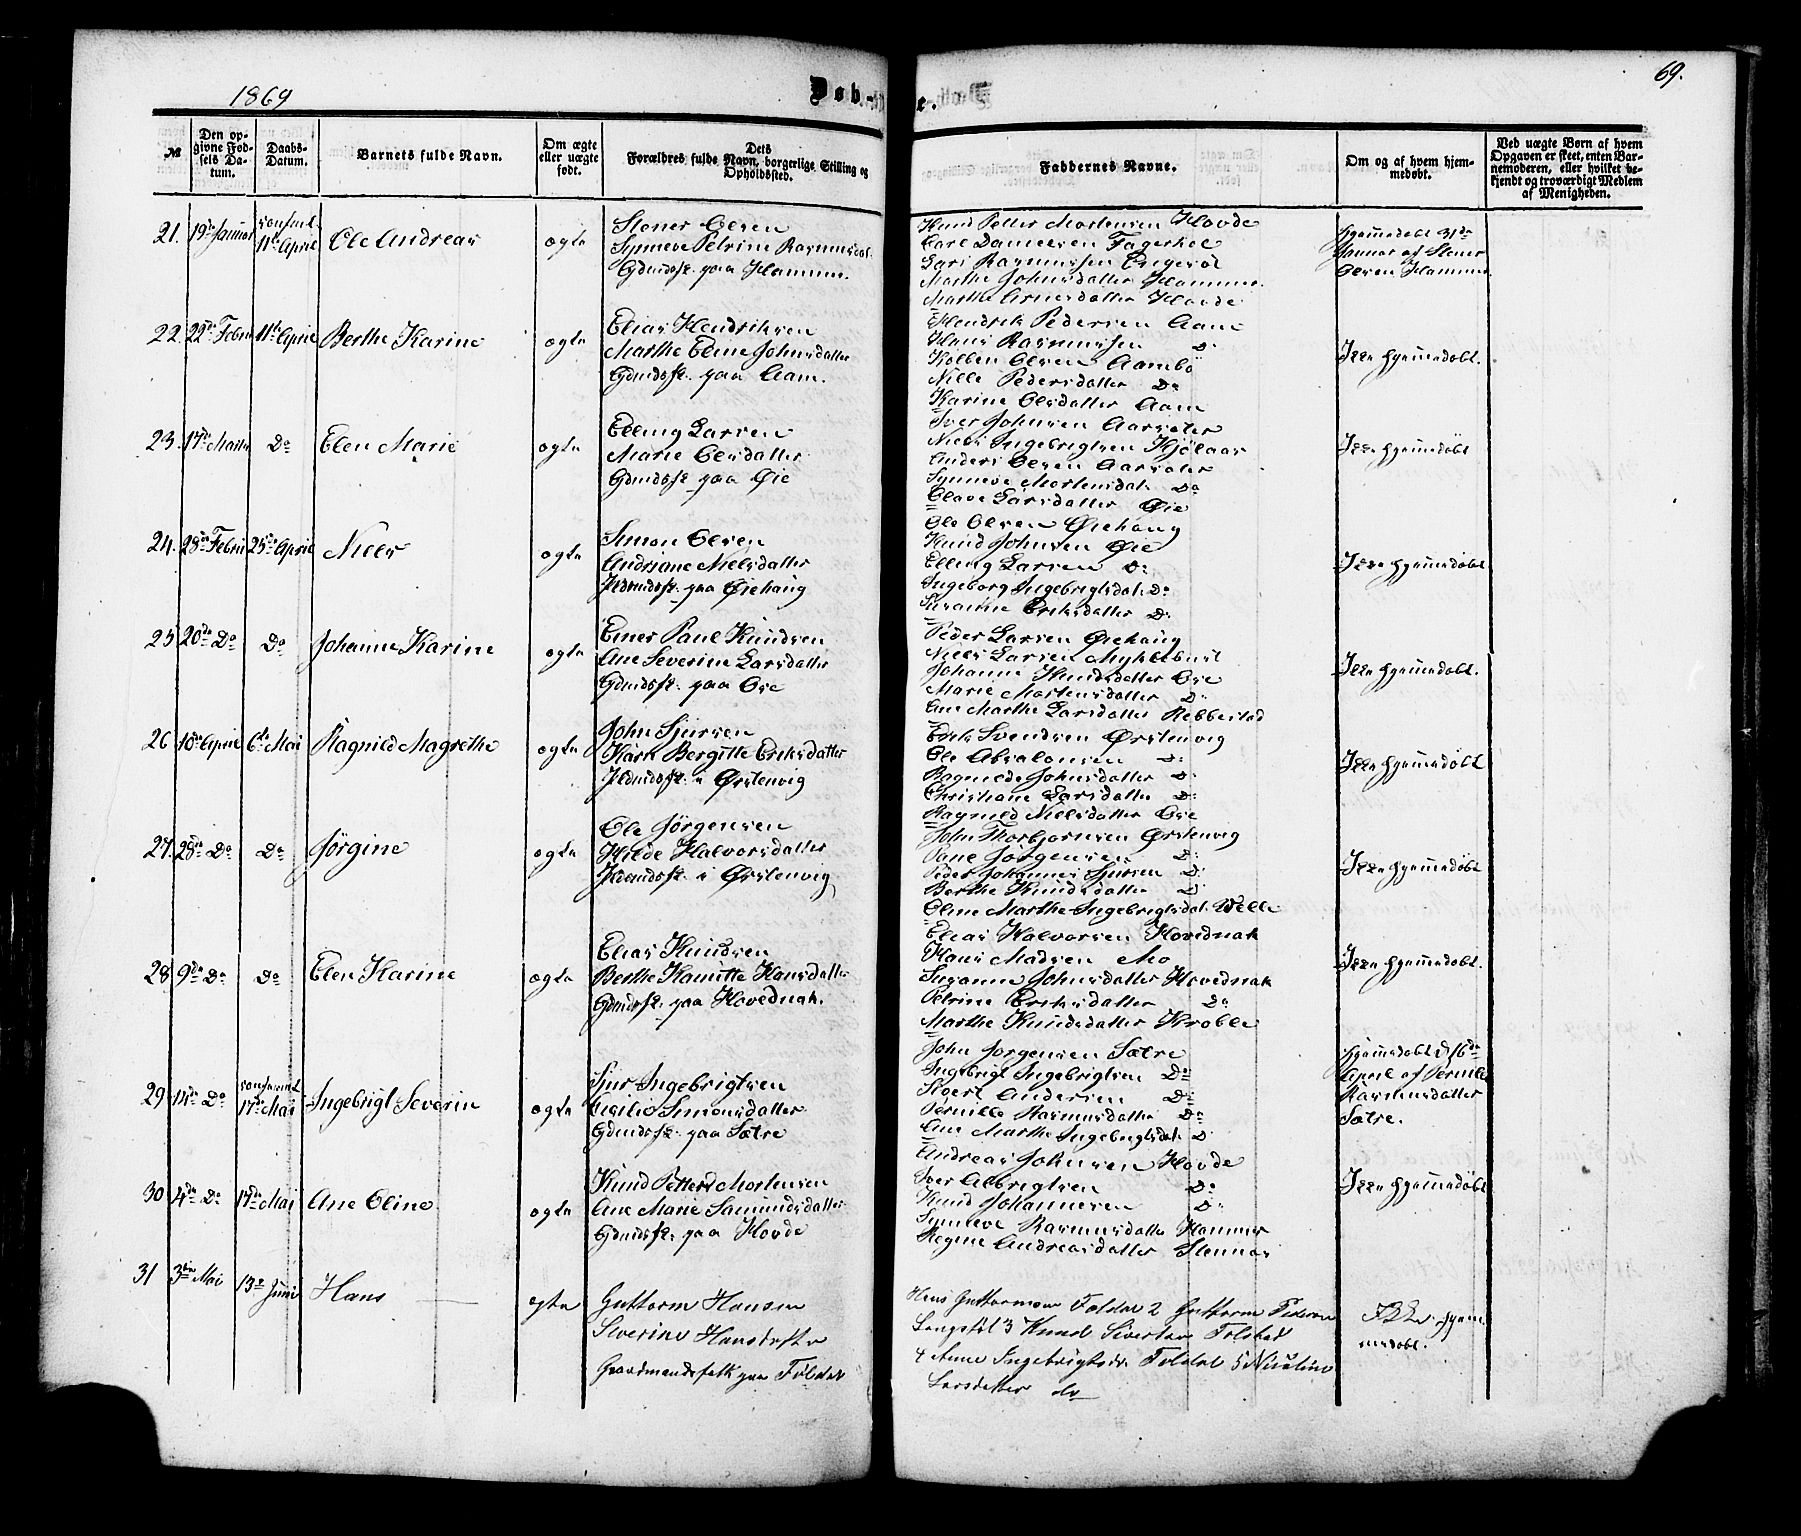 1869
Døb-
e.
69.
№
Den op-
givne Fød-
sels Da-
tum.
Daabs-
Datum.
Barnets fulde Navn.
Om ægte
eller uægte
født.
Dets
Forældres fulde Navn, borgerlige Stilling og
Opholdssted.
Faddernes Navne.
Om og af hvem hjem-
medøbt.
Ved uægte Børn af hvem
Opgaven er skeet, enten Bar-
nemoderen, eller hvilket be-
kjendt og troværdigt Medlem
af Menigheden.
21. 19de Januar
11te April
Ole Andreas
ægte
Stener Olsen
Synneve Petrine Rasmusdat.
Gdmdsf. paa Hammer.
Knud Petter Mortensen Hovde
Carl Danielsen
Lars Rasmussen
Marthe Johnsdatter Hammer.
Marthe Arnesdatter Hovde
Hjemmedøbt 31te
Januar af Stener
Olsen Hammer.
22. 22de Febru 11te April
Berthe Karine
ægte
Elias Hendriksen
Marthe Eline Johnsdatter
Gdmdsf. paa Aam.
Hendrik Pedersen Aam
Hans Rasmussen Do
Kolben Olsen Aambø
Nille Pedersdatter Do
Karine Olsdatter Aam
Ikke hjemmedøbt.
23. 17de Marts Do
Elen Marie
ægte
Elling Larsen
Marie Olsdatter
Gdmdsf. paa Øie
Iver Johnsen Aarsæter
Niels Ingebrigtsen Kjølaas
Anders Olsen Aarsæter
Synneve Mortensdat. Do
Olave Larsdatter Øie
Ikke hjemmedøbt
24. 28de Febru 25de April
Niels
ægte
Simon Olsen
Andriane Nielsdatter
Hdmdsf. paa Øiehaug
Ole Olsen Øiehaug
Knud Johnsen Øie
Elling Larsen Do
Ingeborg Ingebrigtsdat. Do
Susanne Eriksdatter Do
Ikke hjemmedøbt
25 20de Do Do
Johanne Karine
ægte
Einer Paul Knudsen
Ane Severine Larsdatter
Gdmdsf. paa Øie
Peder Larsen Øiehaug
Niels Larsen Myklebust
Johanne Knudsdatter Øie
Marie Mortensdatter Do
Ane Marthe Larsdatter Rebbestad
Ikke hjemmedøbt.
26 10de April 6te Mai
Ragnild Magrethe
ægte
John Sjursen
Karn Bergitte Eriksdatter
Hdmdsf. i Ørstenvig
Erik Svendsen Ørstenvig
Ole Absalonsen Do
Ragnilde Johnsdatter Do
Christiane Larsdatter Do
Ragnild Nielsdatter Øie
Ikke hjemmedøbt
27. 28de Do Do
Jørgine
ægte
Ole Jørgensen
Hilde Halvorsdatter
Hdmdsf. i Ørstenvig
John Thorbjørnsen Ørstenvig
Paul Jørgensen Do
Peder Johannes Sjursen Do
Berthe Knudsdatter Do
Oline Marthe Ingebrigtsdat. Velle
Ikke hjemmedøbt
28. 9de Do Do
Elen Karine
ægte
Elias Knudsen
Berthe Hansdatter
Gdmdsf. paa Hovednak.
Elias Halvorsen Hovednak
Hans Madsen Mo
Susanne Johnsdatter Hovednak
Petrine Eriksdatter Do
Marthe Knudsdatter
Ikke hjemmedøbt.
29 14de Do
17de Mai
Ingebrigt Severin
ægte
Sjur Ingebrigtsen
Simonsdatter
Gdmdsf. paa Sætre
John Jørgensen Sætre
Ingebrigt Ingebrigtsen Do
Andersen Do
Pernille Rasmusdatter Do
Ane Marthe Ingebrigtsdat. Do
Hjemmedøbt d. 16de
April af Pernille
Rasmusdatter
Sætre.
30 4de Do 17de Mai
Ane Oline
ægte
Knud Petter Mortensen
Ane Marie Samundsdatter
Gdmdsf. paa Hovde
Andreas Johnsen Hovde
Iver Albrigtsen Do
Knud Johannesen Do
Synneve Rasmusdatter Hammer
Regine Andreasdatter Stennes
Ikke hjemmedøbt
31 3die Mai 13de Juni
Hans
ægte
Guttorm Hansen
Severine Hansdatter
Gaardmandsfolk paa Foldal
Hans Guttormsen Foldal 2 Guttorm Pedersen
3 Knud Sivertsen
4 Anne Ingebrigtsdr. Foldal 5
Larsdatter do
Ikke hjem-
medøbt.